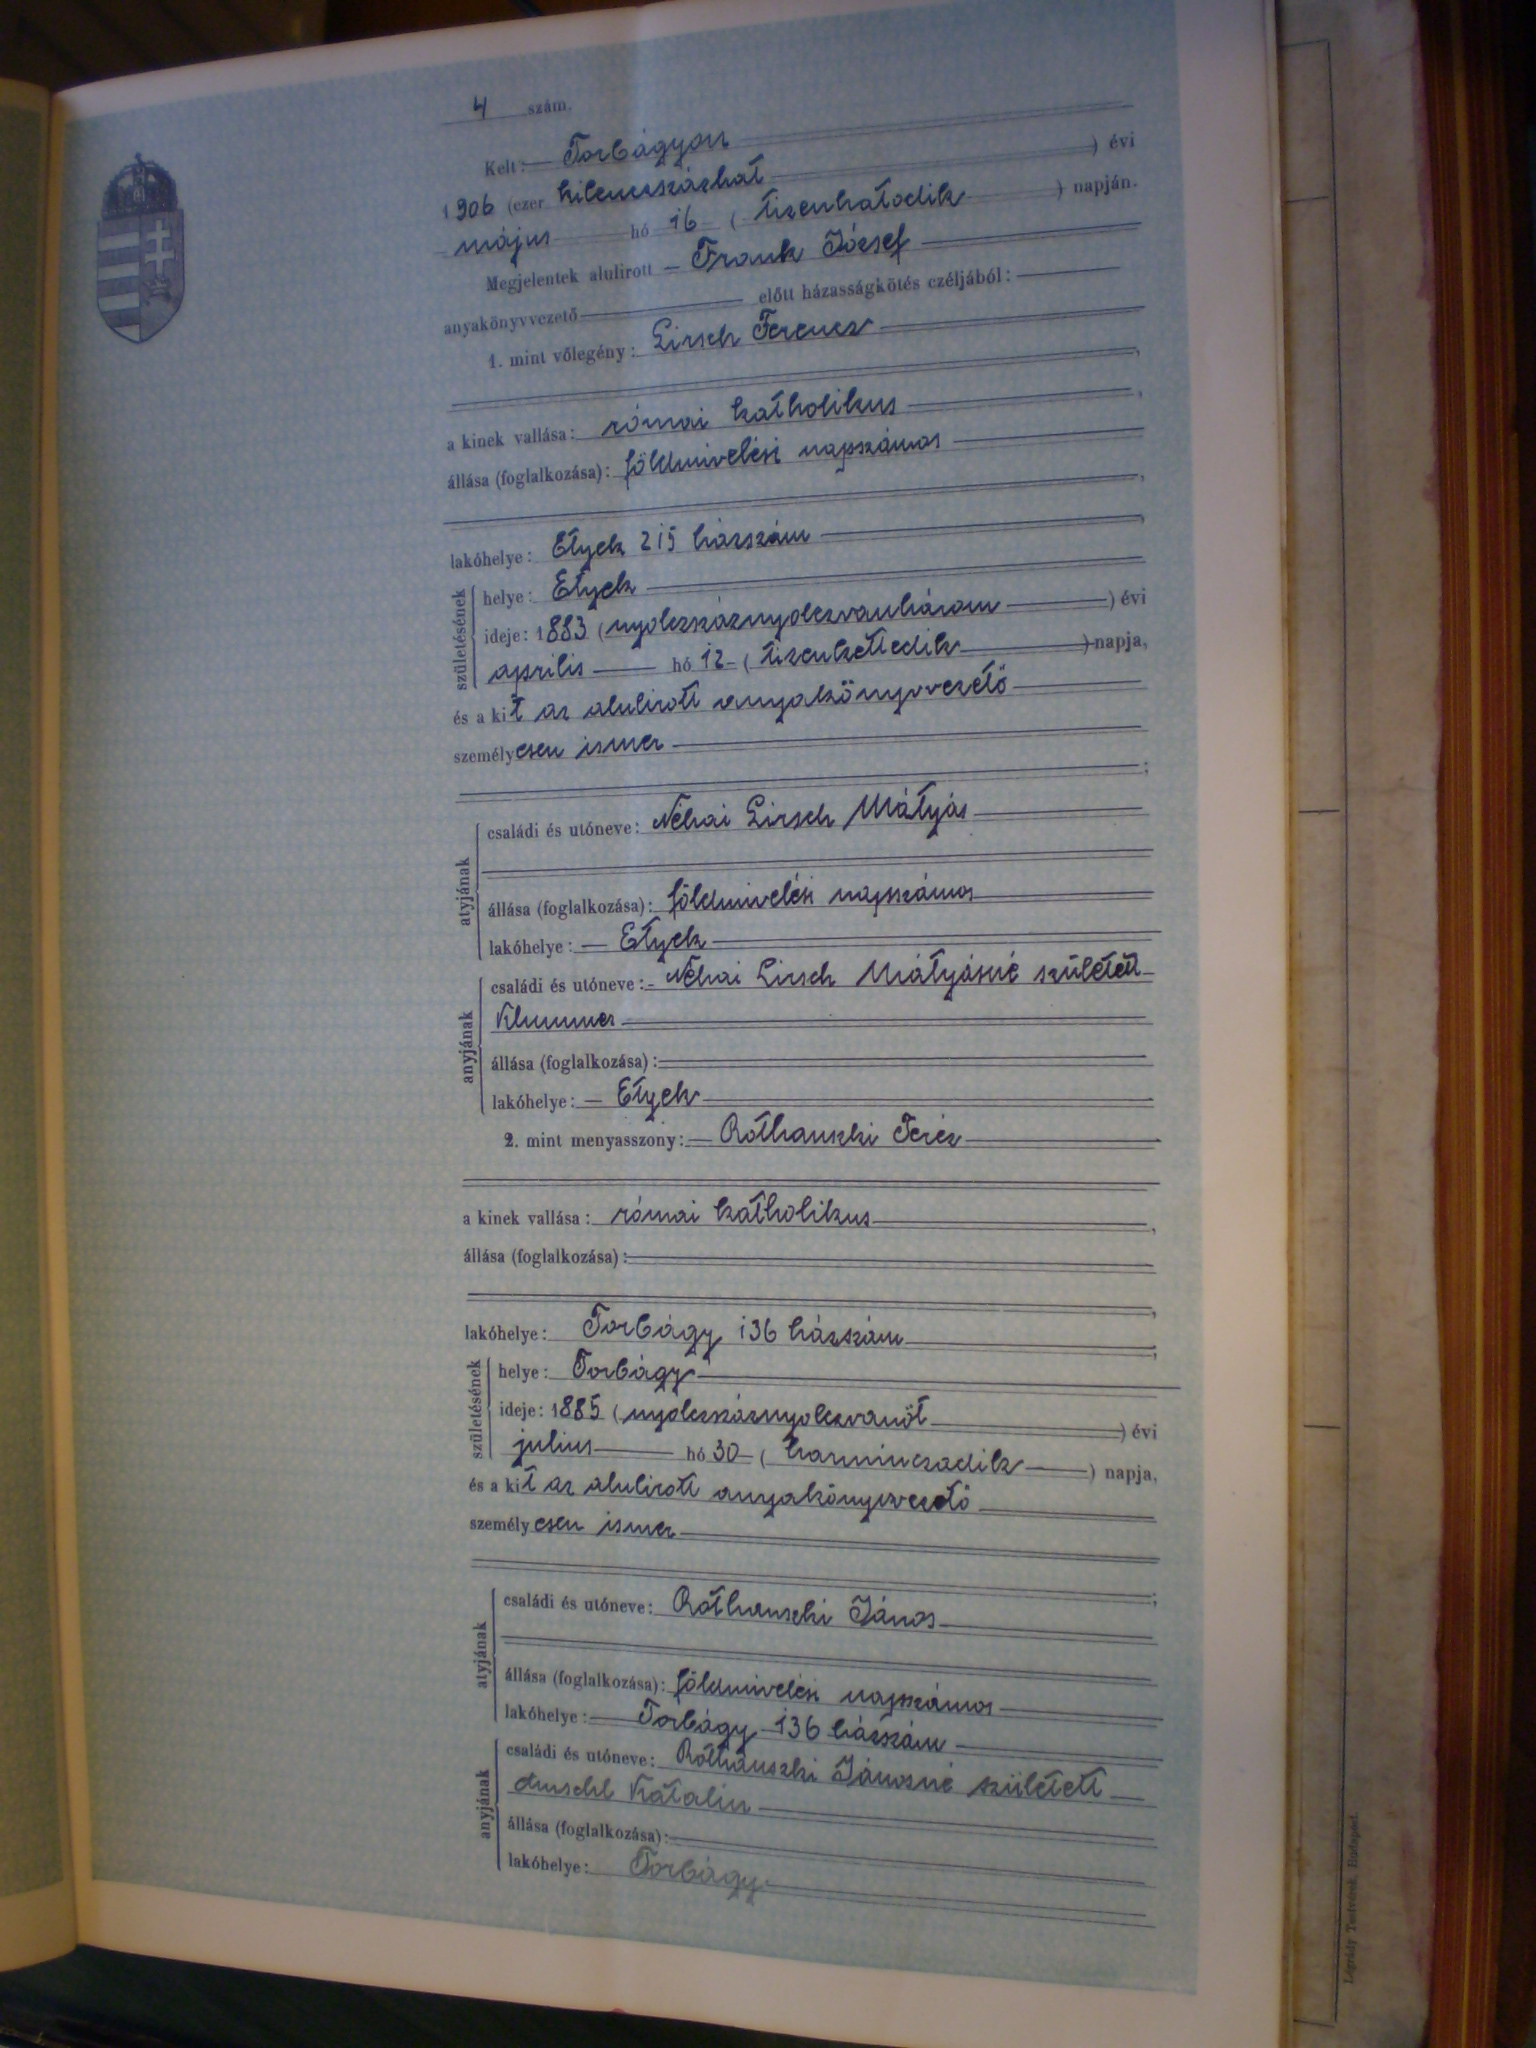 4 szám.
Kelt: Torbágyon
1906 (ezer kilenczszázhat) évi
május hó 16 (tizenhatodik) napján.
Megjelentek alulirott Frank József
anyakönyvvezető előtt házasságkötés czéljából:
1. mint vőlegény: Lirsch Ferencz
a kinek vallása: római katholikus
állása (foglalkozása): földmivelési napszámos
lakóhelye: Etyek 215 házszám
születésének
helye: Etyek
ideje: 1883 (nyolczszáznyolczvanhárom) évi
április hó 12 (tizenkettedik) napja,
és a kit az alulirott anyakönyvvezető
személyesen ismer
;
atyjának
családi és utóneve: Néhai Lirsch Mátyás
állása (foglalkozása): földmivelési napszámos
lakóhelye: Etyek
anyjának
családi és utóneve: Néhai Lirsch Mátyásné született
állása (foglalkozása):
lakóhelye: Etyek
2. mint menyasszony: Rothauszki Teréz
a kinek vallása: római katholikus
állása (foglalkozása):
lakóhelye: Torbágy 136 házszám
születésének
helye: Torbágy
ideje: 1885 (nyolczszáznyolczvanöt) évi
julius hó 30 (harminczadik) napja,
és a kit az alulirott anyakönyvvezető
személyesen ismer
;
atyjának
családi és utóneve: Rothauszki János
állása (foglalkozása): földmivelési napszámos
lakóhelye: Torbágy 136 házszám
anyjának
családi és utóneve: Rothauszki Jánosné született
Katalin
állása (foglalkozása):
lakóhelye: Torbágy
Légrády Testvérek, Budapest.